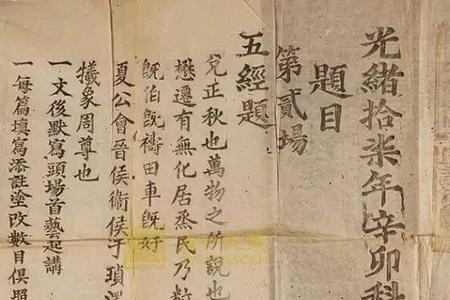 光緒拾柒年辛卯科
題目
第貳場
五經題
兌正秋也萬物之所說也
懋遷有無化居烝民乃粒
既伯既禱田車既好
夏公會晉侯衞侯于瑣澤
犧象周尊也
一文後默寫頭場首藝起講
一每篇填寫添註塗改數目俱照